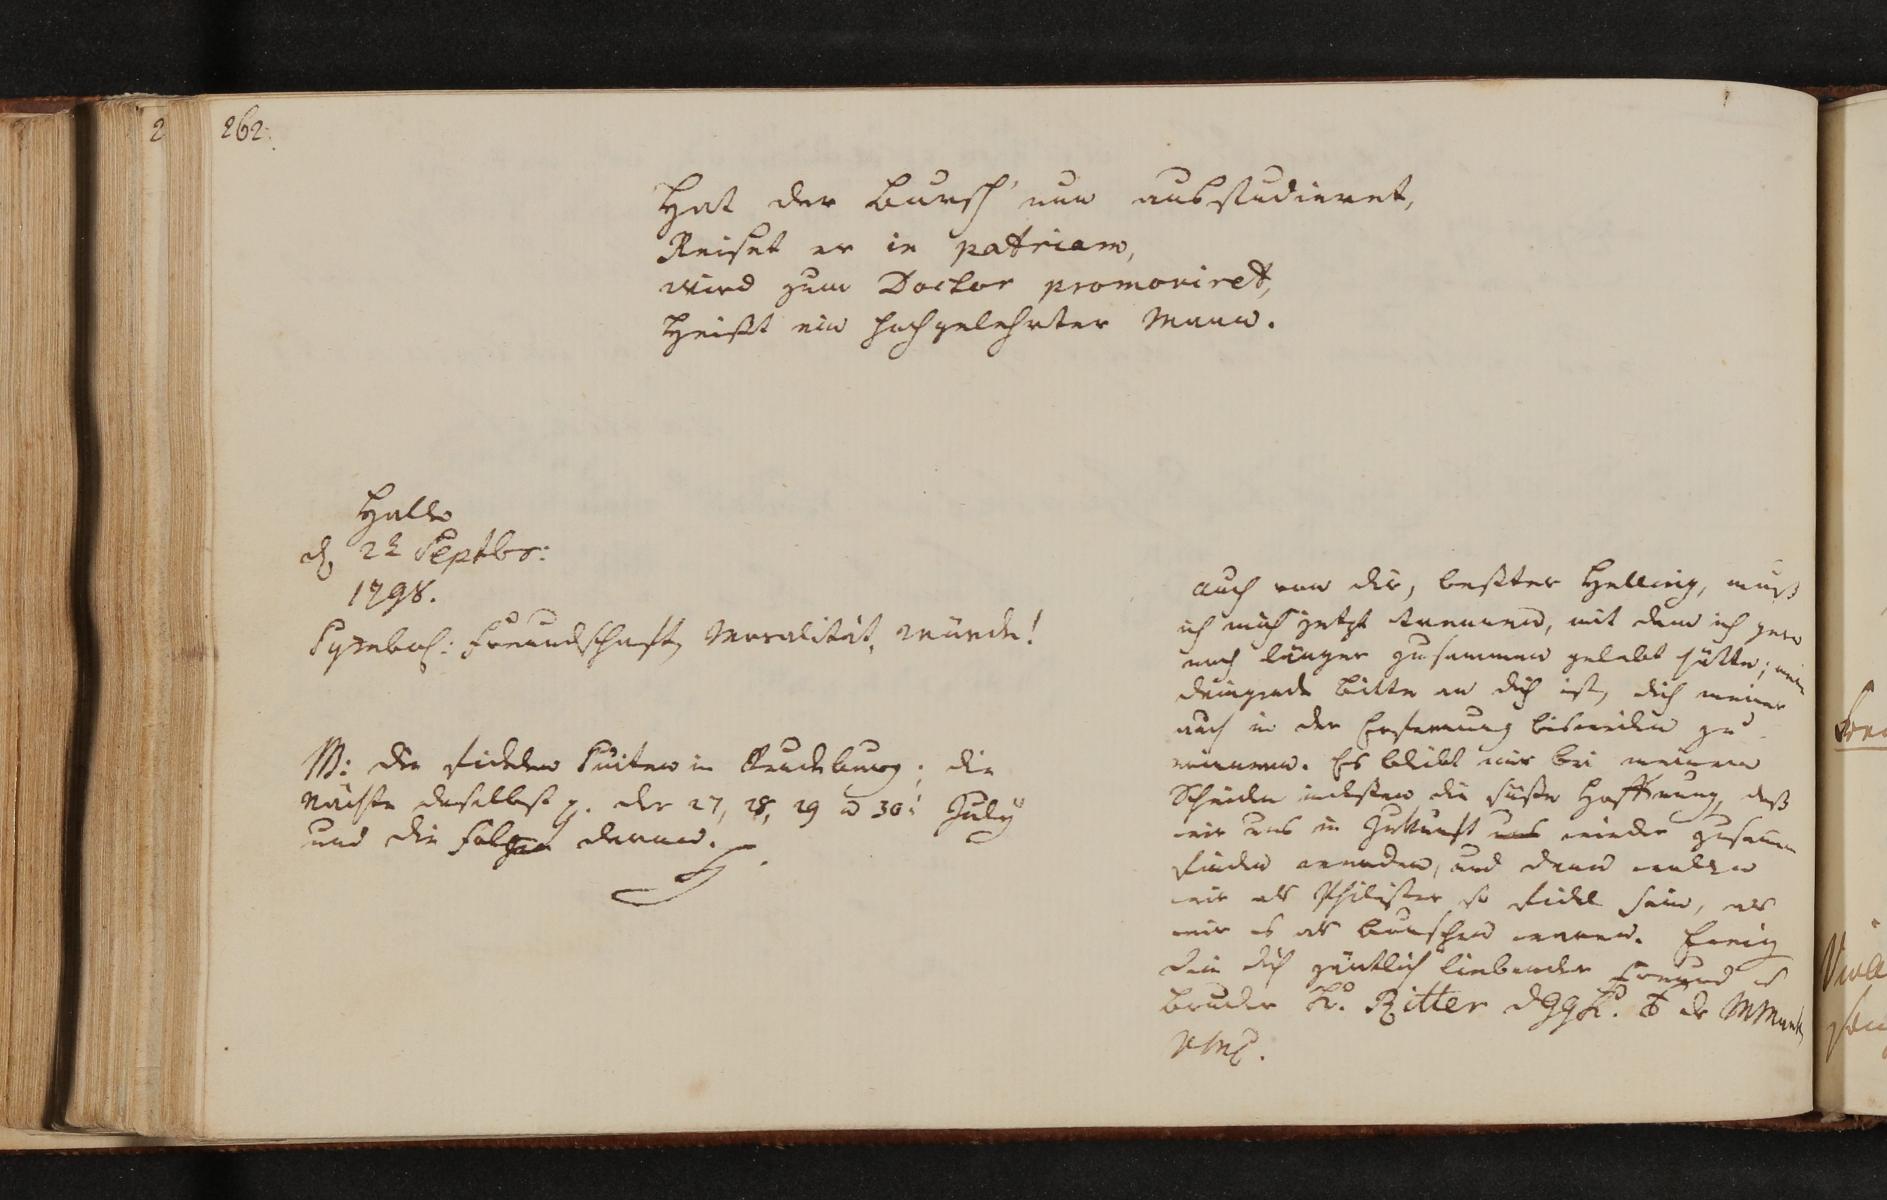 262.
Hat der Bursch' nun ausstudieret,
Reiset er in patriam,
wird zum Doctor promoviret,
Heißt ein hochgelehrter Mann.
Halle
d 22 Septbr:
1798.
Symbol: Freundschaft, Moralität, Würde!
M: die fidelen Suiten in ; die
Nächte daselbst p. der 27, 28, 29 u 30! July
und die Folgen davon.
Auch von dir, bester Helling, muß
ich mich jetzt trennen, mit dem ich gern
noch länger zusammen gelebt hätte; meine
dringende Bitte an dich ist, dich meiner
auch in der Entfernung bisweilen zu
erinnern. Es bleibt mir bei meinem
Scheiden indessen die süße Hoffnung, daß
wir uns in Zukunft uns wieder zusammen
finden werden, und dann wollen
wir als Philister so fidel sein, als
wir es als Burschen waren. Ewig
dein dich zärtlich liebender Freund u
Bruder Ritter